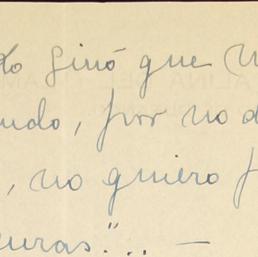 to sinó que
ndo, por no d
, no quiero f
uras."... —